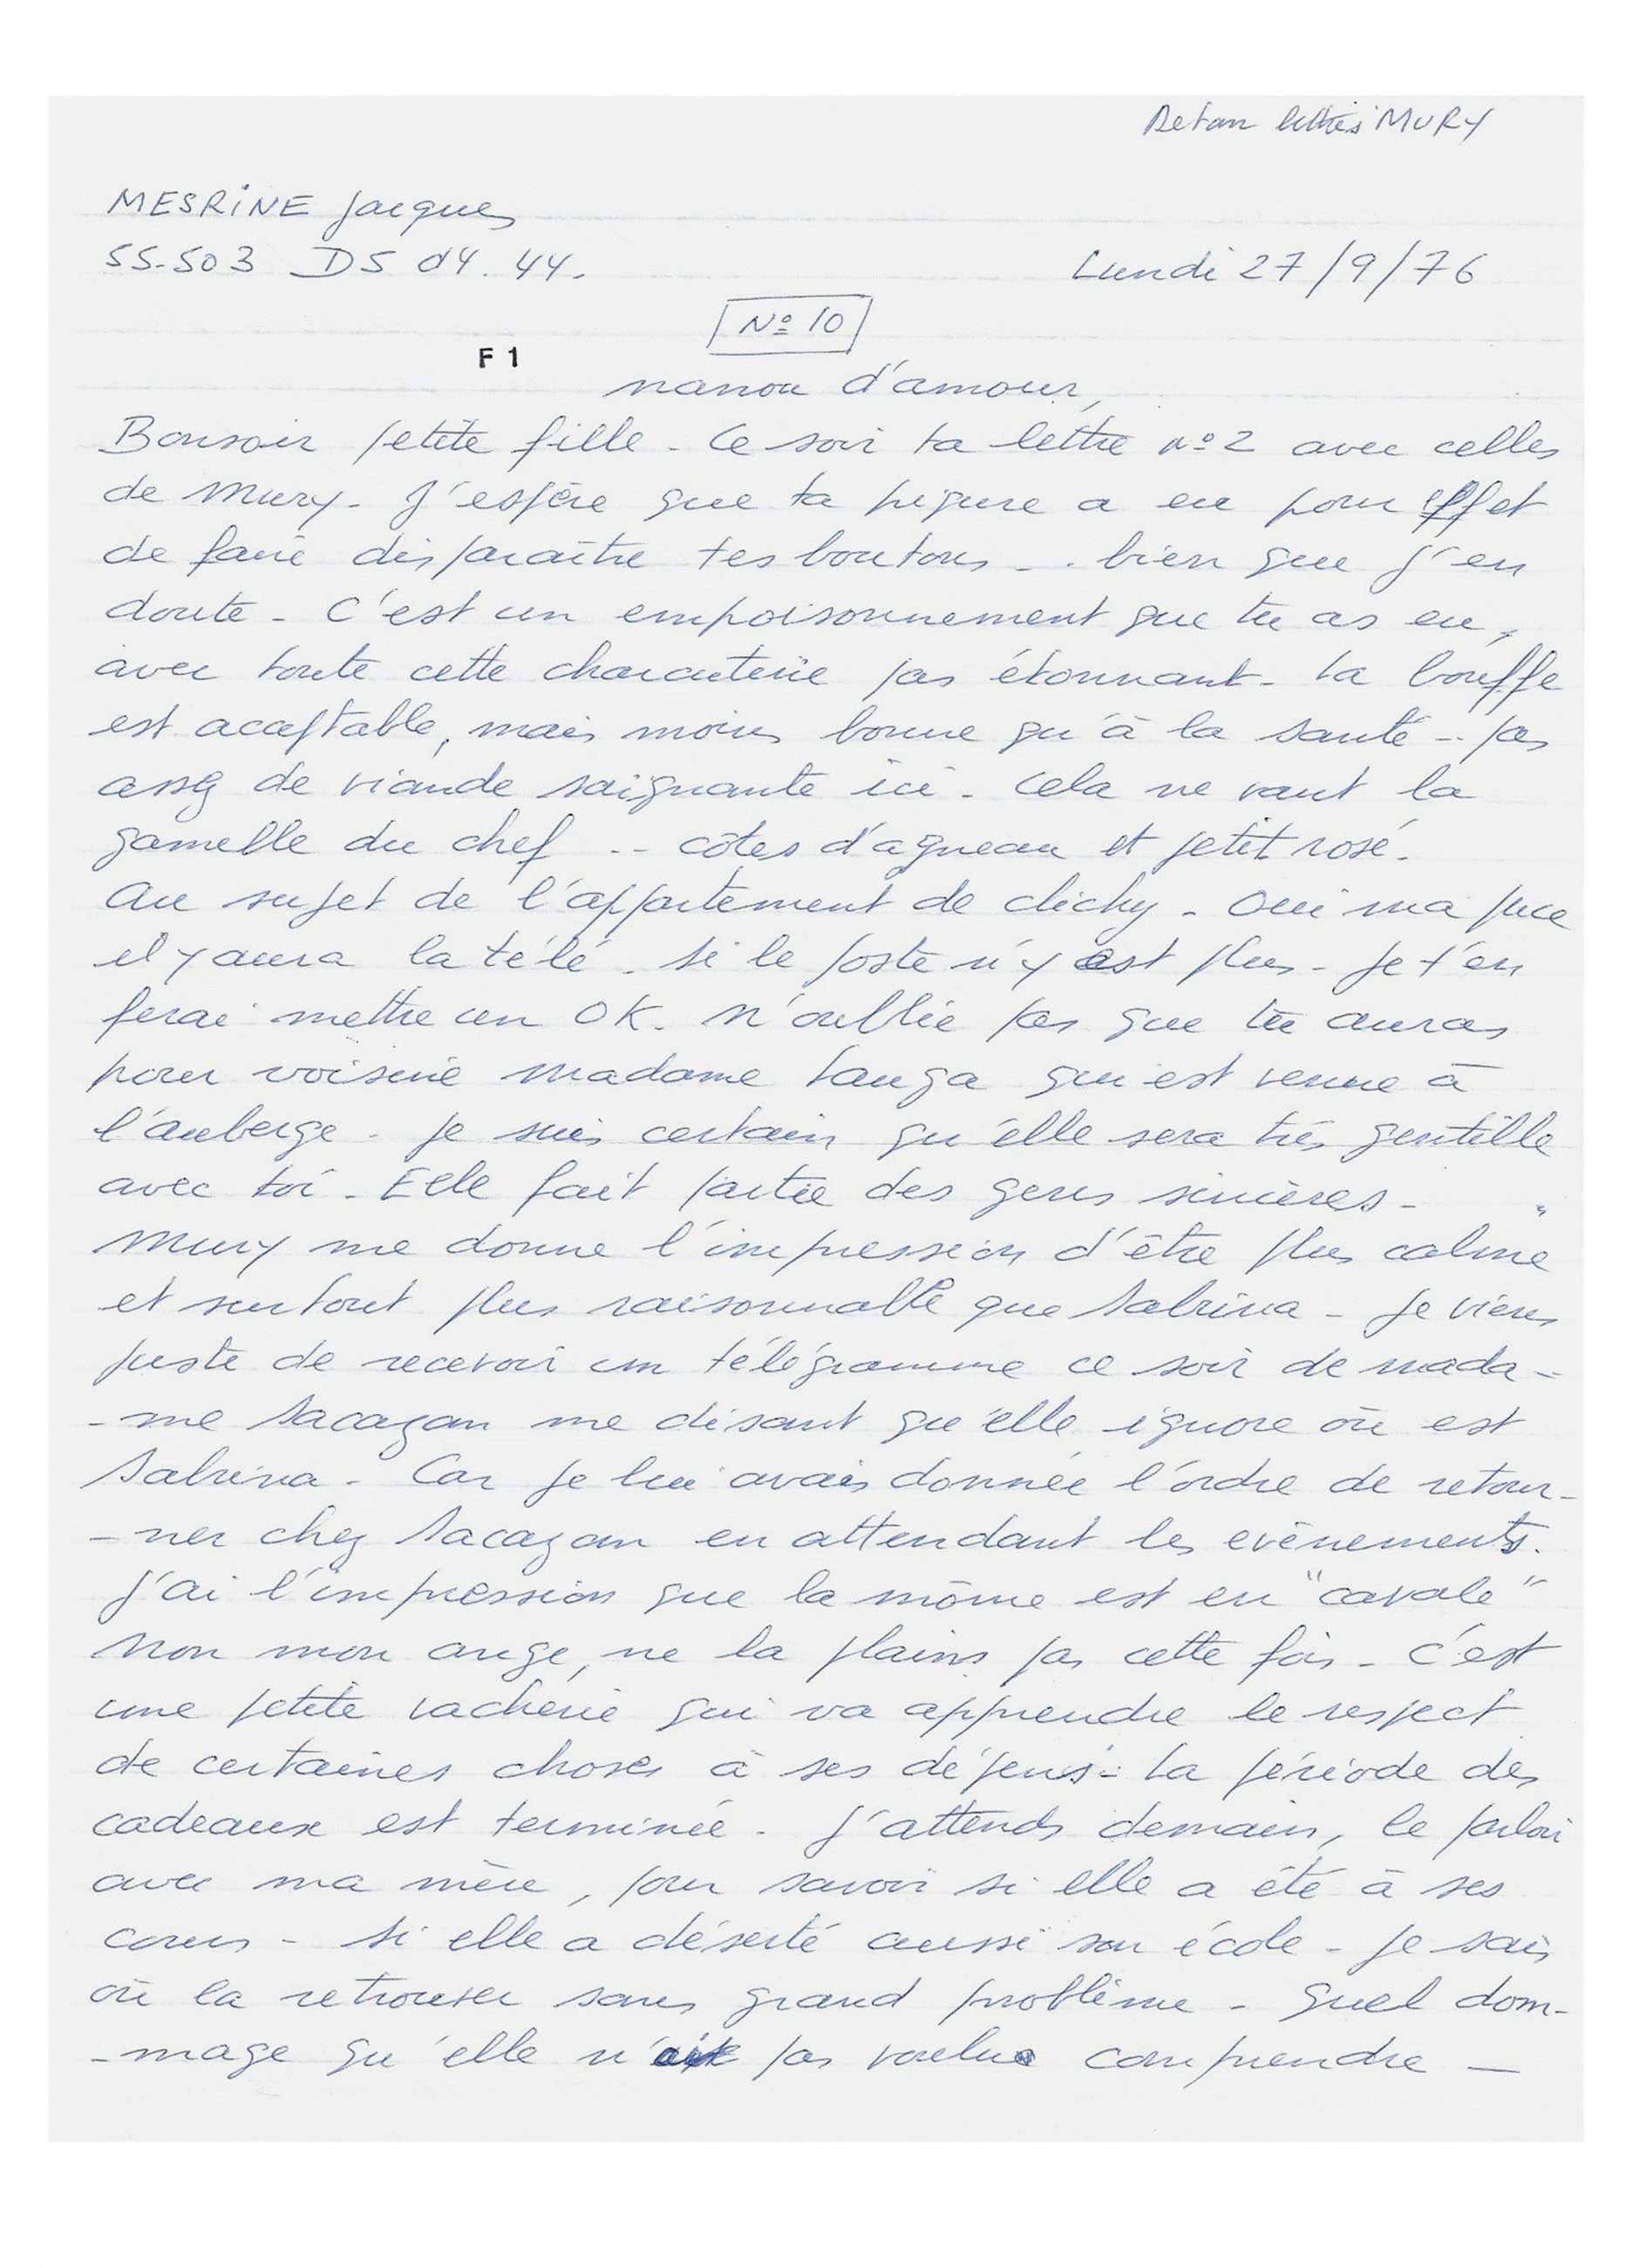 Retour lettres MURY
MESRINE Jacques
55-503 D5 d4. 44.
Lundi 27/9/76
N° 10
F 1
nanou d'amour,
Bonsoir petite fille - Ce soir ta lettre n° 2 avec celles
de Mury - J'espère que ta piqure a eu pour effet
de faire disparaître tes boutons - . bien que j'en
doute - C'est un empoisonnement que tu as eu,
avec toute cette charcuterie pas étonnant - La bouffe
est acceptable, mais moins bonne qu'à la santé - pas
assez de viande saignante ici - cela ne vaut la
gamelle du chef -- côtes d'agneau et petit rosé.
Au sujet de l'appartement de clichy - Oui ma puce
il y aura la télé - si le poste n'y est plus - Je t'en
ferai mettre un OK. N'oublie pas que tu auras
pour voisine madame Tanga qui est venue à
l'auberge - Je suis certain qu'elle sera très gentille
avec toi - Elle fait partie des gens sincères -
Mury me donne l'impression d'être plus calme
et surtout plus raisonnable que Sabrina - Je viens
juste de recevoir un télégramme ce soir de mada-
-me Sacazan me disant qu'elle ignore où est
Sabrina - Car je lui avais donnée l'ordre de retour-
-ner chez Sacazan en attendant les evènements.
J'ai l'impression que la môme est en "cavale"
Non mon ange, ne la plains pas cette fois - C'est
une petite vacherie qui va apprendre le respect
de certaines choses à ses dépens - La période des
cadeaux est terminée - J'attends demain, le parloir
avec ma mère, pour savoir si elle a été à ses
cours - Si elle a déserté aussi son école - Je sais
où la retrouver sans grand problème - Quel dom-
-mage qu'elle n'ait pas voulue comprendre -